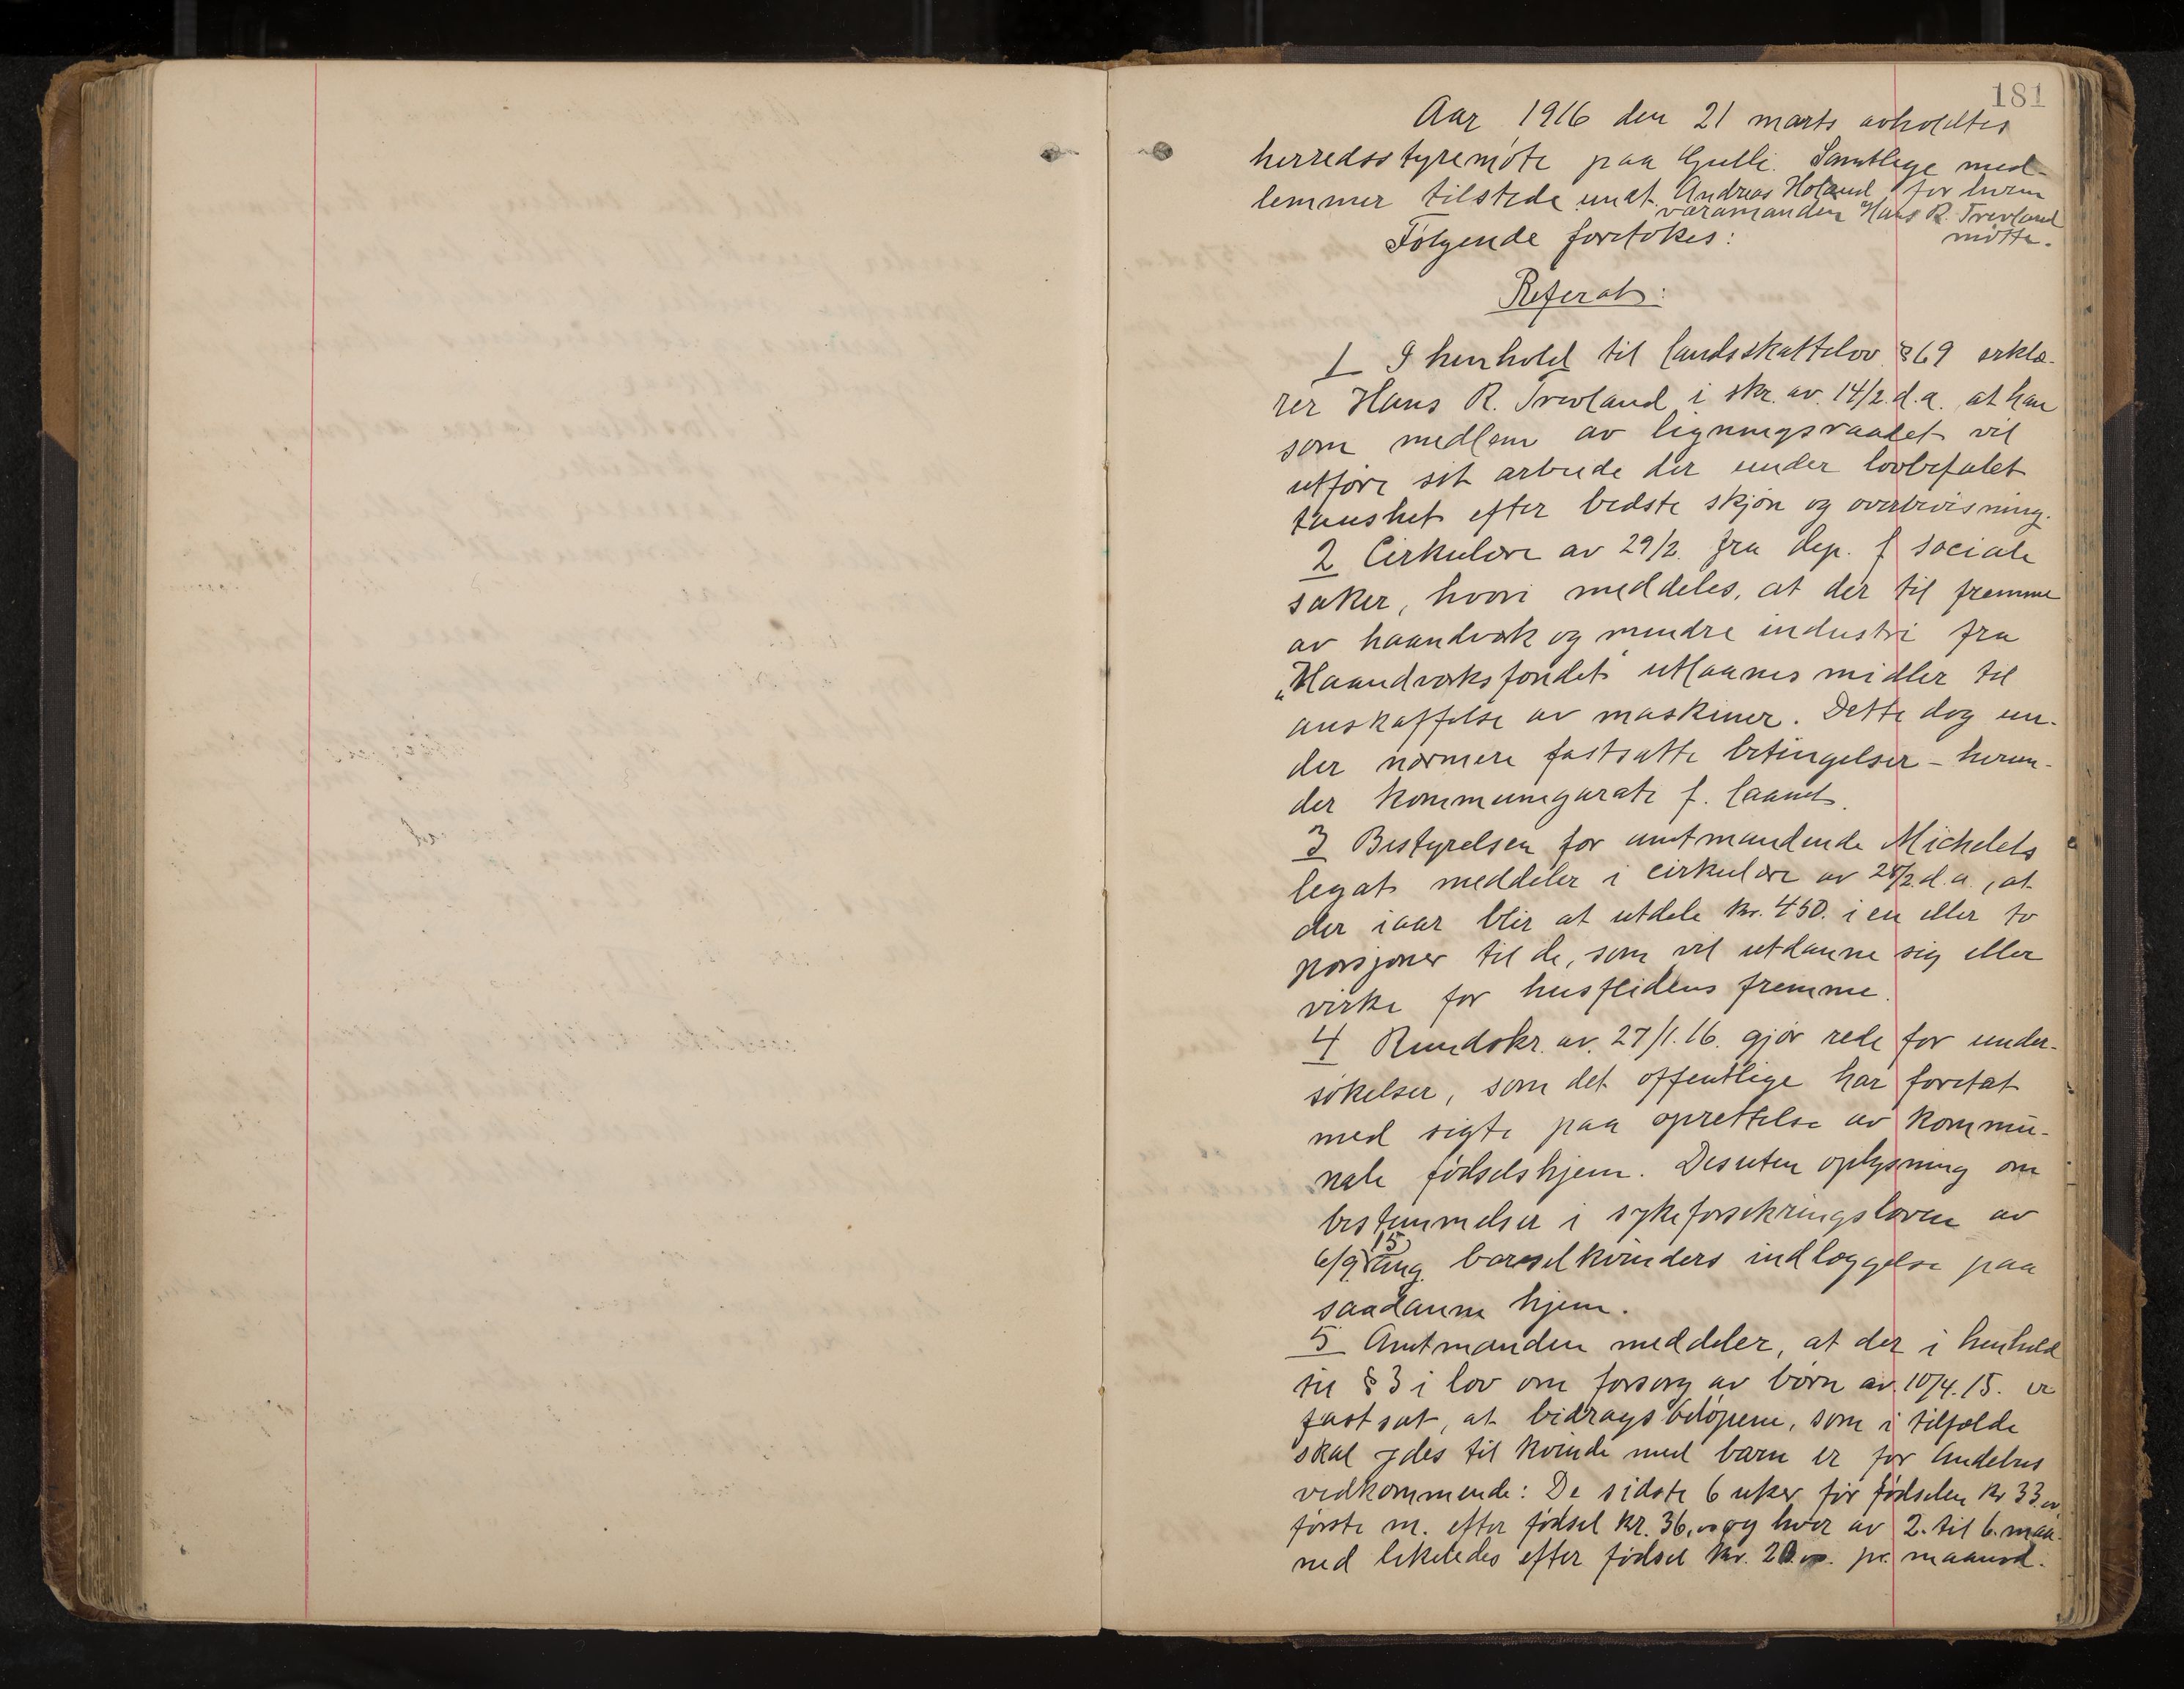 181
Aar 1916 den 21 marts avholdtes
herredsstyremøte paa Gulli. Samtlige med-
lemmer tilstede undt. Andreas Holand, for hvem
varamanden Hans R. Trevland
møtte.
Følgende foretokes:
Referat:
1 I henhold til landsskattelov § 69 erklæ-
rer Hans R. Trevland i skr. av 14/2 d.a. at han
som medlem av ligningsraadet vil
utføre sit arbeide der under lovbefalet
taushet efter bedste skjøn og overbevisning.
2 Cirkulære av 29/2. fra dep. f sociale
saker, hvori meddeles, at der til fremme
av haandverk og mindre industri fra
"Haandverksfondet" utlaanes midler til
anskaffelse av maskiner. Dette dog un-
der nærmere fastsatte betingelser - herun-
der kommunegarate f. laanet.
3 Bestyrelsen for amtmandende Michelets
legat meddeler i cirkulære av 28/2 d.a., at
der iaar blir at utdele kr. 450. i en eller to
porsjoner til de, som vil utdanne sig eller
virke for husflidens fremme.
4 Rundskr. av. 27/1.16. gjør rede for under-
søkelser, som det offentlige har foretat
med sigte paa oprettelse av kommu-
nale fødselshjem. Desuten oplysning om
bestemmelser i sykeforsikringsloven av
6/9 15 ang. barselkvinders indlæggelse paa
saadanne hjem.
5 Amtmanden meddeler, at der i henhold
til § 3 i lov om forsorg av børn av 10/4.15. er
fastsat, at bidragsbeløpene, som i tilfælde
skal ydes til kvinde med barn er for Andebus
vedkommende: De sidste 6 uker før fødselen kr 33,00
første m. efter fødsel kr. 36,00 og hver av 2. til 6. maa-
ned likeledes efter fødsel kr. 20.00. pr. maaned.